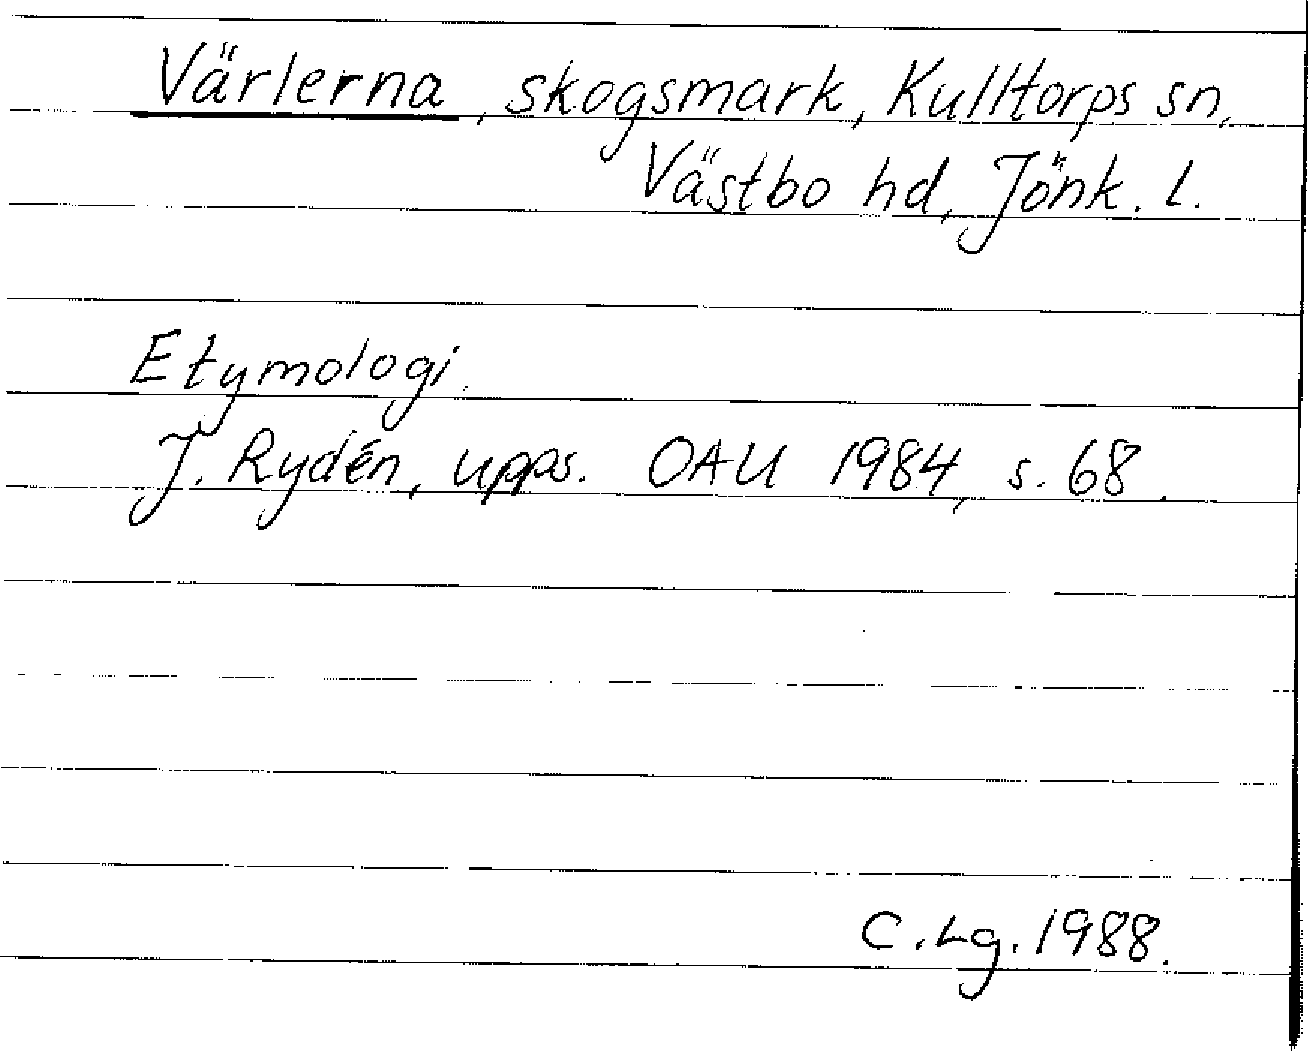 Värlerna, skogsmark, Kulltorps sn,
Västbo hd, Jönk. l.
Etymologi.
J. Rydén, upps. OAU 1984, s. 68.
C.Lg. 1988.